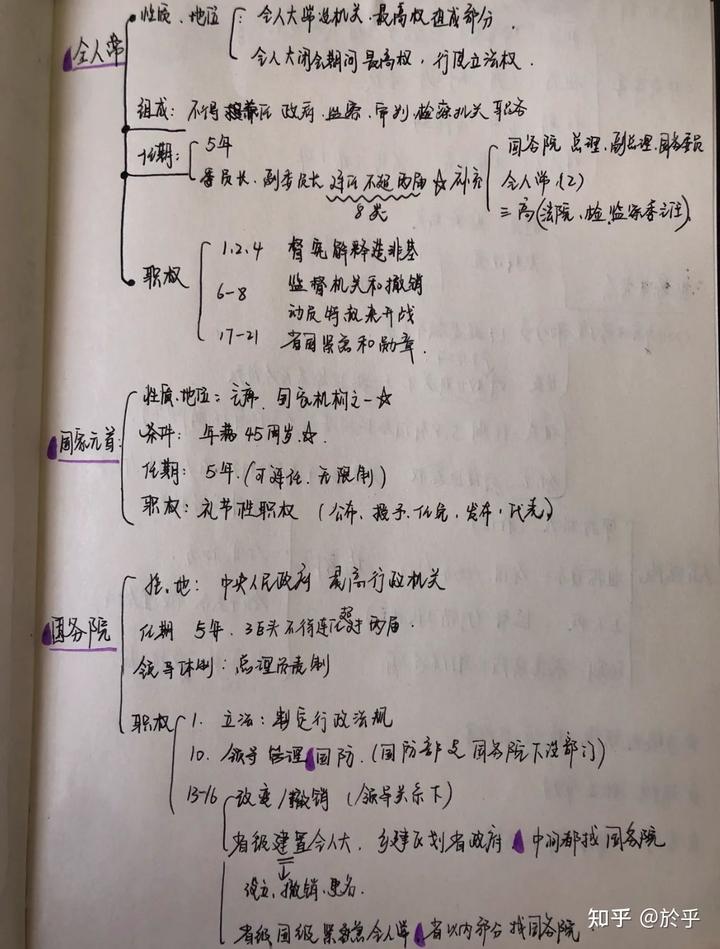 全人常
性质、地位: 全人大常设机关、最高权组成部分
全人大闭会期间最高权,行使立法权.
组成: 不得兼任 政府、监察、审判、检察机关 职务
任期: 5年
委员长、副委员长 连任不超两届 ☆ 补充
8类
国务院 总理、副总理、国务委员
全人常 (2)
三高(法院、检、监察委主任)
职权 1、2、4 督宪解释造非基
6-8 监督机关和撤销
动员特赦来开战
17-21 省国紧衔和勋章.
国家元首:
性质、地位: 主席、国家机构之一☆
条件: 年满45周岁.☆.
任期: 5年.(可连任、无限制)
职权: 礼节性职权 (公布、授予、任免、发布、代表)
国务院
性、地: 中央人民政府 最高行政机关
任期 5年. 3巨头不得连任超两届.
领导体制: 总理负责制
职权 1. 立法: 制定行政法规
10. 领导管理国防.(国防部是国务院下设部门)
13-16 改变/撤销 (领导关系下)
省级建置全人大, 乡建区划省政府 中间都找国务院
设立、撤销、更名.
省级国级紧急全人常 省以内部分找国务院.
知乎 @於乎